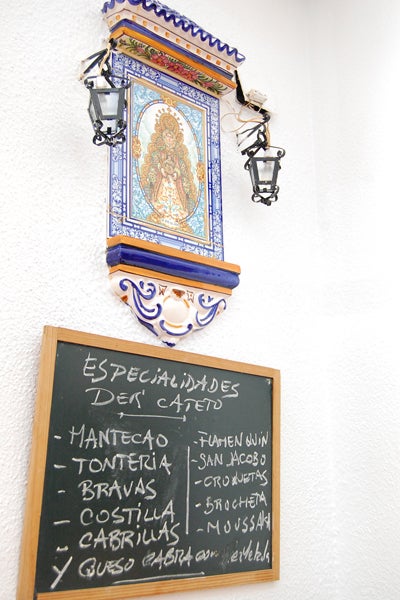 ESPECIALIDADES
DER CATETO
- MANTECAO
- TONTERIA
- BRAVAS
- COSTILLA
- CABRILLAS
- FLAMENQUIN
- SAN JACOBO
- CROQUETAS
- BROCHETA
- MOUSSAKA
Y QUESO CABRA